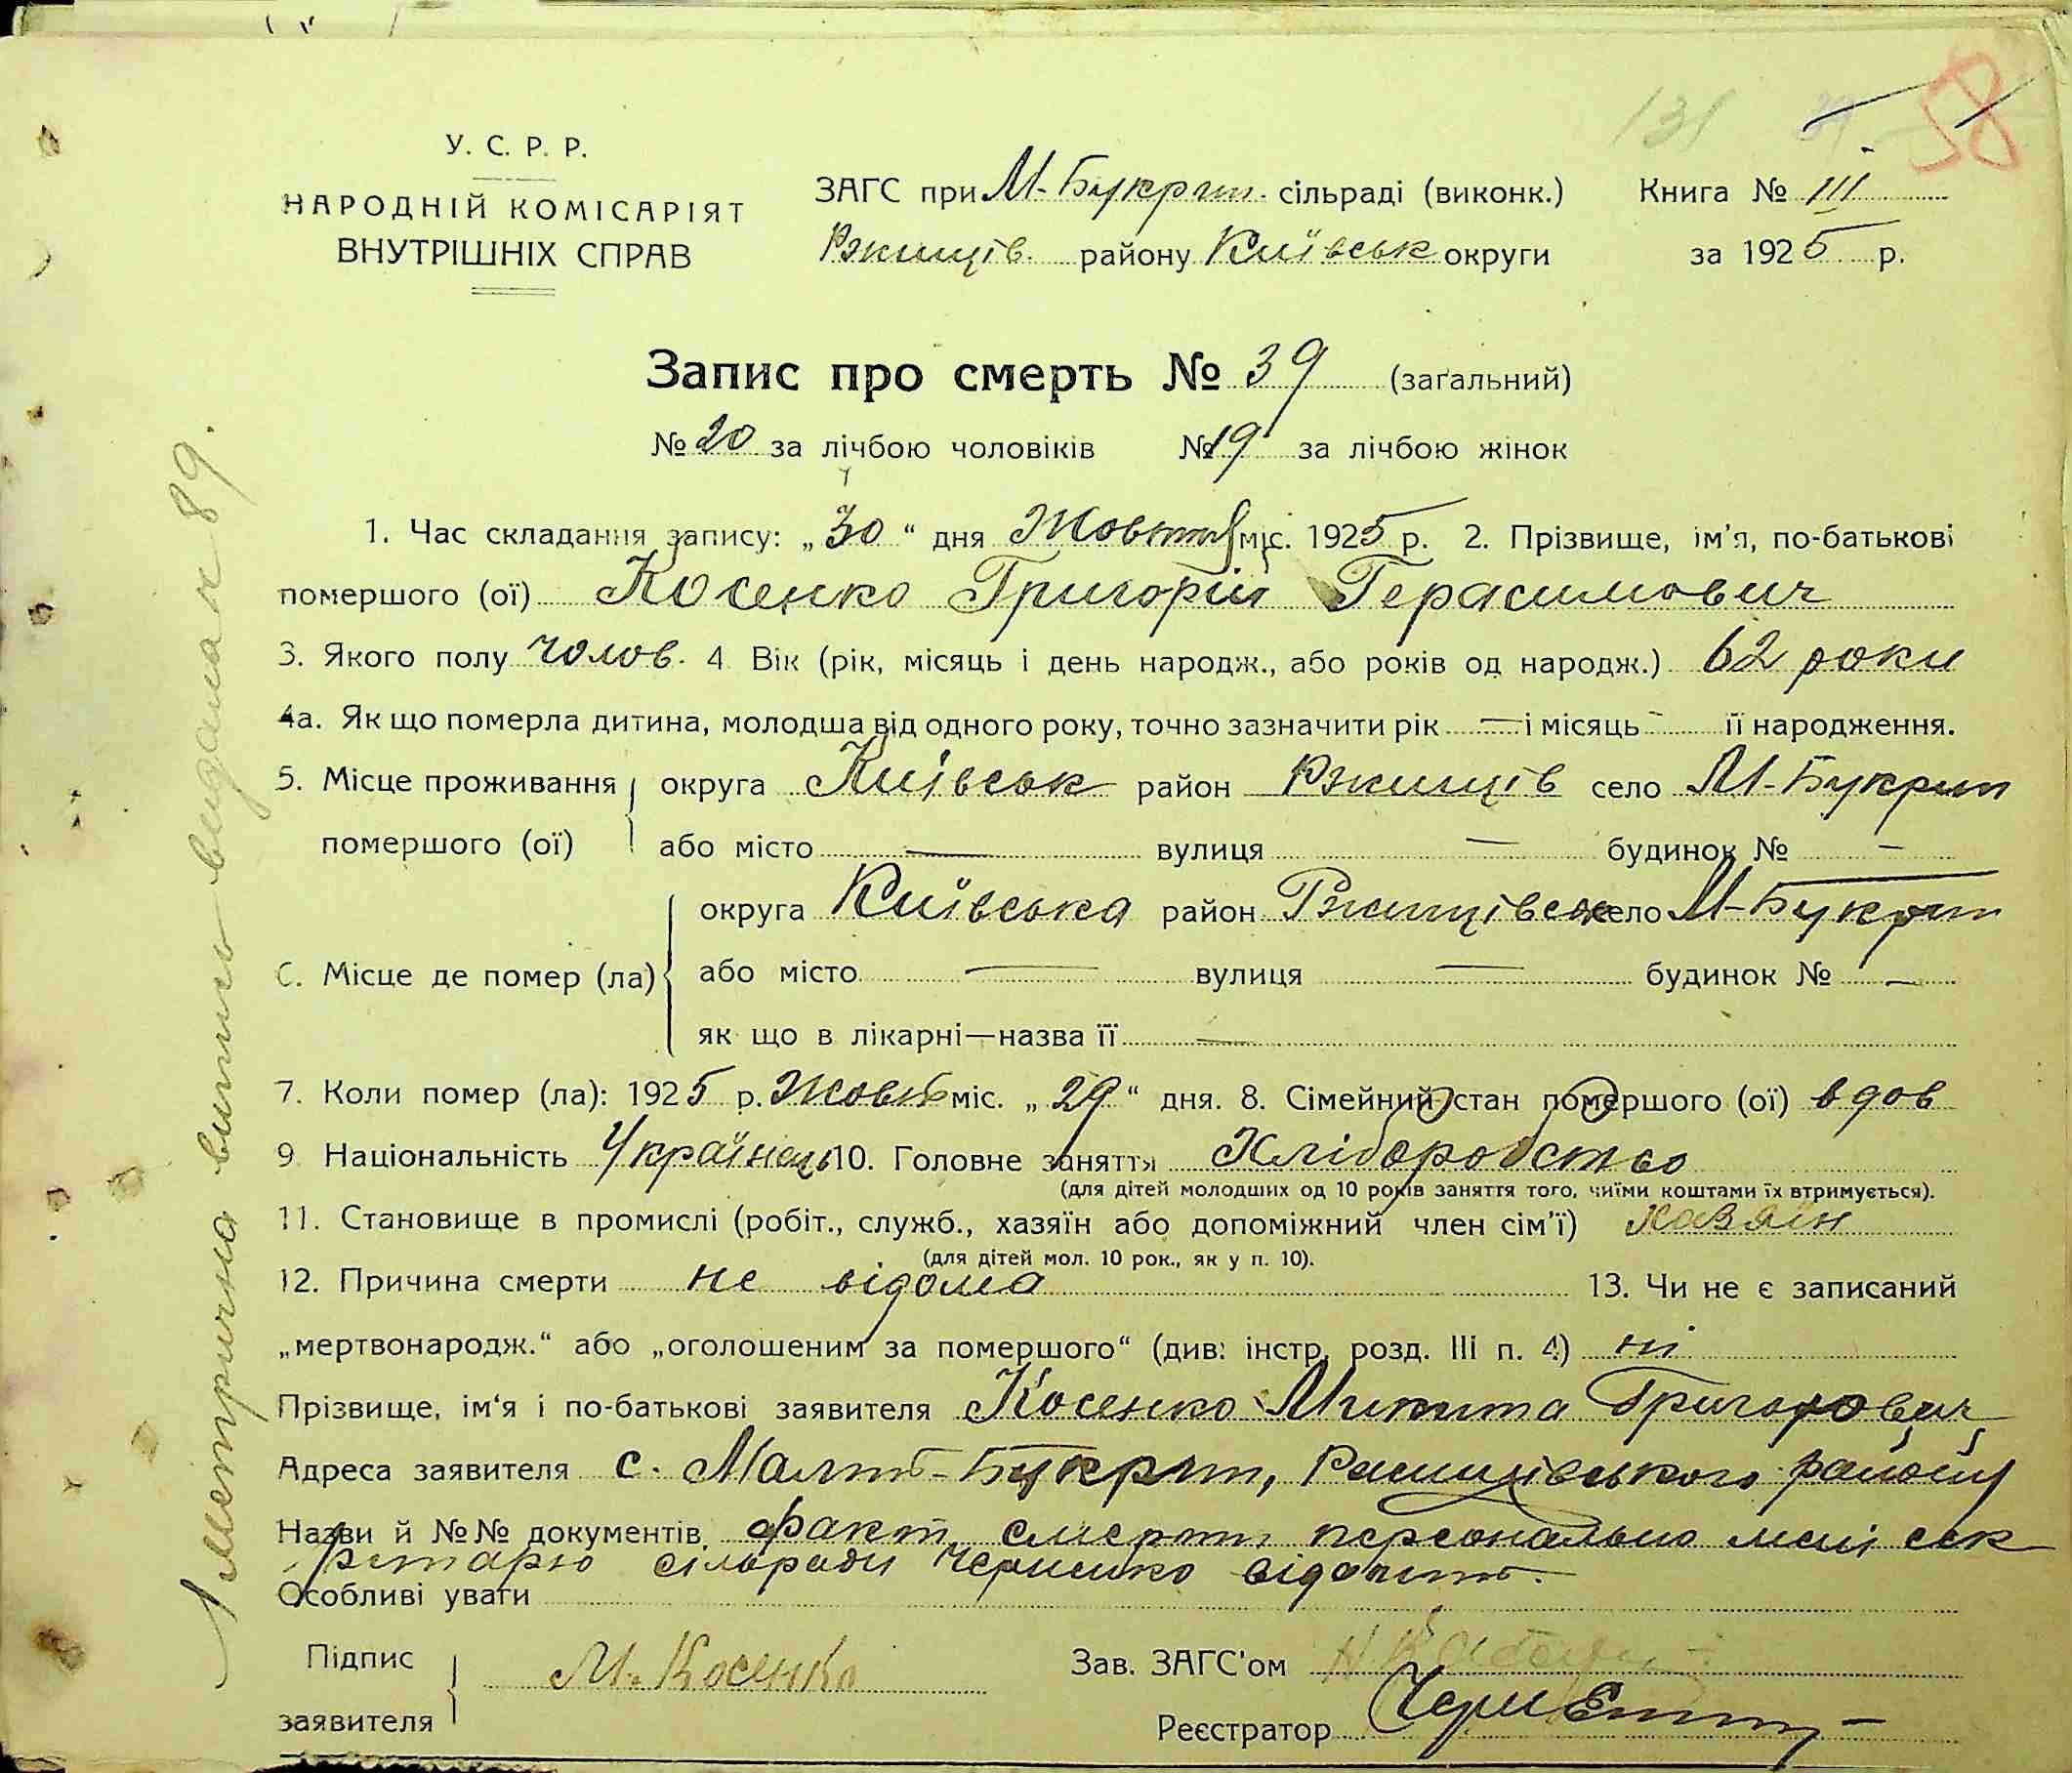 131 58
У. С. Р. Р.
НАРОДНІЙ КОМІСАРІЯТ
ВНУТРІШНІХ СПРАВ
ЗАГС при М-Букрин. сільраді (виконк.) Книга № III
Ржищів. району Київськ округи за 1925 р.
Запис про смерть № 39 (заґальний)
№ 20 за лічбою чоловіків № 19 за лічбою жінок
1. Час складання запису: „30“ дня Жовтня міс. 1925 р. 2. Прізвище, ім'я, по-батькові
помершого (ої) Косенко Григорій Герасимович
3. Якого полу чолов. 4 Вік (рік, місяць і день народж., або років од народж.) 62 роки
4а. Як що померла дитина, молодша від одного року, точно зазначити рік — і місяць - її народження.
5. Місце проживання округа Київськ район Ржищів село М-Букрин
помершого (ої) або місто — вулиця — будинок № —
округа Київська район Ржищівськ село М-Букрин
6. Місце де помер (ла) або місто — вулиця — будинок № —
як що в лікарні—назва її —
7. Коли помер (ла): 1925 р. Жовт міс. „29“ дня. 8. Сімейний стан помершого (ої) вдов
9 Національність Українець 10. Головне заняття Хліборобство
(для дітей молодших од 10 років заняття того, чиїми коштами їх втримується).
11. Становище в промислі (робіт., служб., хазяїн або допоміжний член сім'ї) хазяїн
(для дітей мол. 10 рок., як у п. 10).
12. Причина смерти не відома 13. Чи не є записаний
„мертвонародж.“ або „оголошеним за помершого“ (див: інстр. розд. III п. 4) ні
Прізвище, ім'я і по-батькові заявителя Косенко Микита Григорович
Адреса заявителя с. Малий-Букрин, Ржищівського району
Назви й №№ документів. факт смерти персонально мені сек
ретарю сільради Черненко відомий.
Особливі уваги
Підпис
заявителя М. Косенко
Зав. ЗАГС'ом
Реєстратор
1 метрична випись видана к 89.